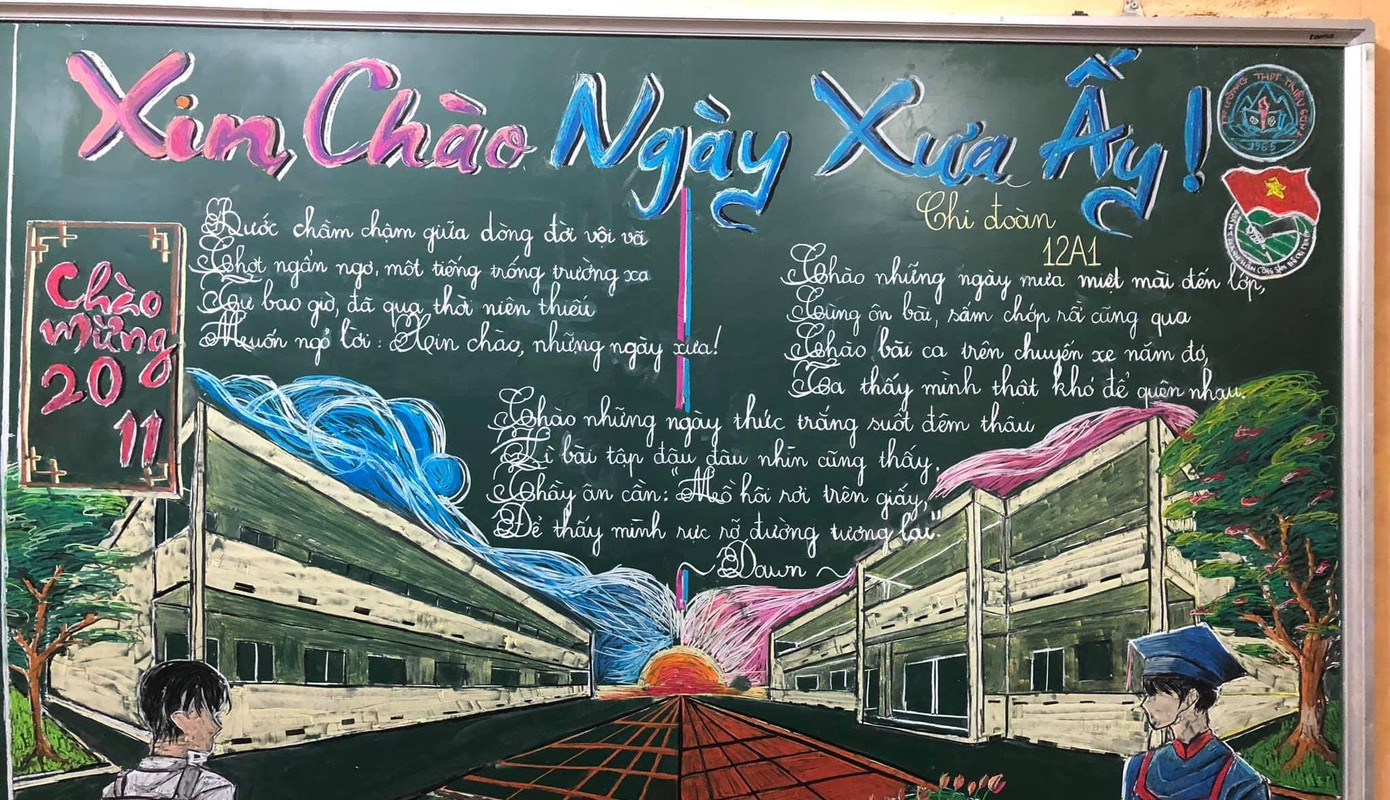 Xin Chào Ngày Xưa Ấy!
TRƯỜNG THPT THIỆU HÓA
1965
Chi đoàn
12A1
Chào
mừng
20
11
Bước chầm chậm giữa dòng đời vội vã
Chợt ngẩn ngơ, một tiếng trống trường xa
Tự bao giờ, đã qua thời niên thiếu
Muốn ngỏ lời: Xin chào, những ngày xưa!
Chào những ngày mưa miệt mài đến lớp,
Cùng ôn bài, sấm chớp rồi cũng qua
Chào bài ca trên chuyến xe năm đó,
Ta thấy mình thật khó để quên nhau.
Chào những ngày thức trắng suốt đêm thâu
Vì bài tập đâu đâu nhìn cũng thấy.
Thầy ân cần: "Mồ hôi rơi trên giấy,
Để thấy mình rực rỡ đường tương lai".
~ Dawn ~